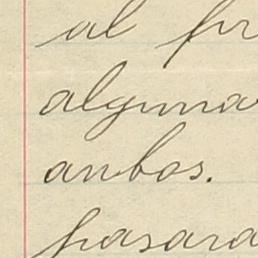 al pr
alguna
ambos.
pasara